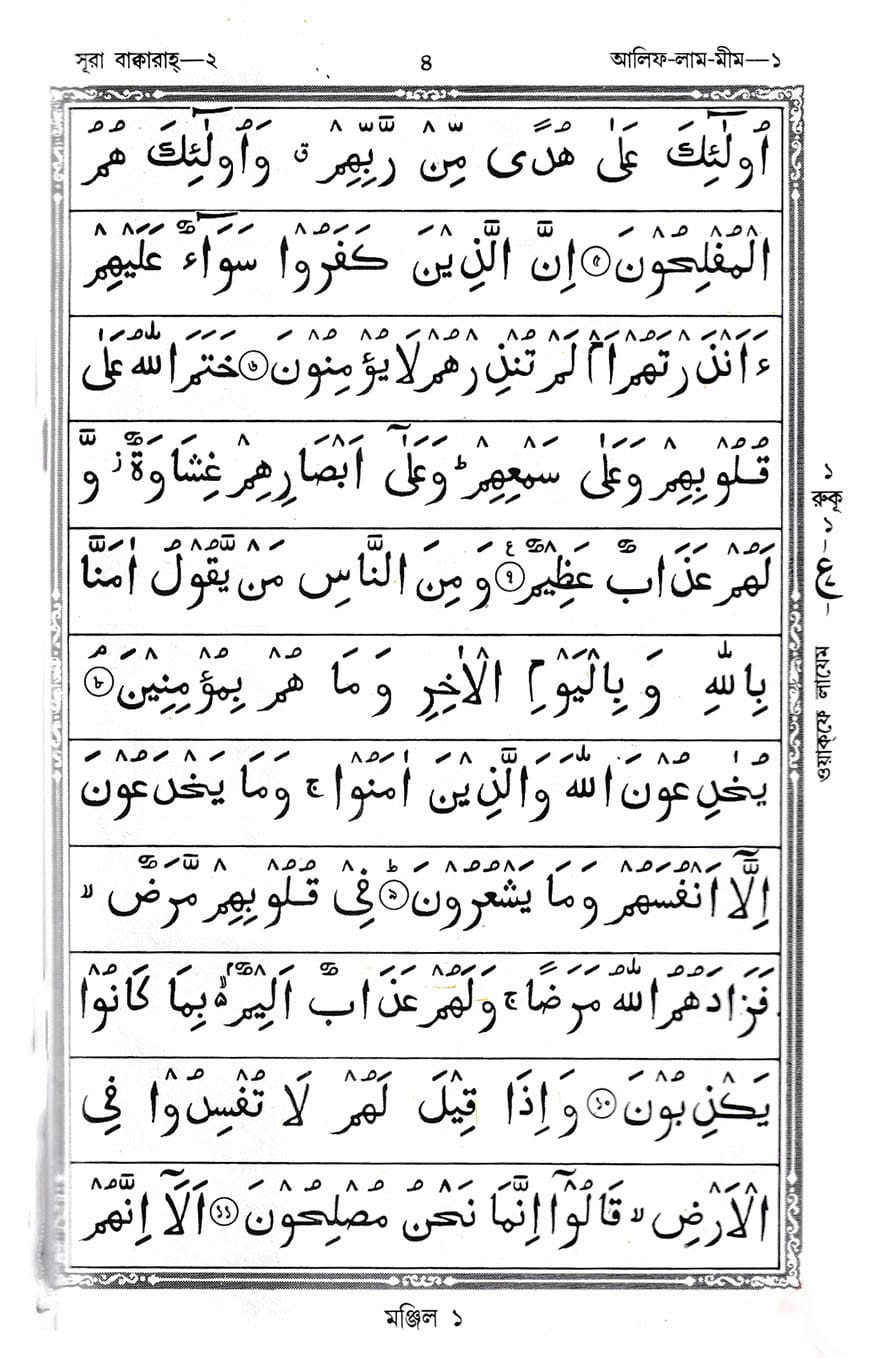 সূরা বাক্বারাহ্—২ ৪ আলিফ-লাম-মীম—১
اُولٰٓئِكَ عَلٰى هُدًى مِّنْ رَّبِّهِمْ ق وَاُولٰٓئِكَ هُمُ
الْمُفْلِحُوْنَ ۝٥ اِنَّ الَّذِيْنَ كَفَرُوْا سَوَآءٌ عَلَيْهِمْ
ءَاَنْذَرْتَهُمْ اَمْ لَمْ تُنْذِرْهُمْ لَا يُؤْمِنُوْنَ ۝٦ خَتَمَ اللّٰهُ عَلٰى
قُلُوْبِهِمْ وَعَلٰى سَمْعِهِمْ ط وَعَلٰٓى اَبْصَارِهِمْ غِشَاوَةٌ ز وَّ
لَهُمْ عَذَابٌ عَظِيْمٌ ۝٧ ع وَمِنَ النَّاسِ مَنْ يَّقُوْلُ اٰمَنَّا
بِاللّٰهِ وَ بِالْيَوْمِ الْاٰخِرِ وَمَا هُمْ بِمُؤْمِنِيْنَ ۝٨ م
يُخٰدِعُوْنَ اللّٰهَ وَالَّذِيْنَ اٰمَنُوْا ج وَمَا يَخْدَعُوْنَ
اِلَّآ اَنْفُسَهُمْ وَمَا يَشْعُرُوْنَ ۝٩ ط فِيْ قُلُوْبِهِمْ مَّرَضٌ لا
فَزَادَهُمُ اللّٰهُ مَرَضًا ج وَلَهُمْ عَذَابٌ اَلِيْمٌۢ ۙ بِمَا كَانُوْا
يَكْذِبُوْنَ ۝١٠ وَاِذَا قِيْلَ لَهُمْ لَا تُفْسِدُوْا فِي
الْاَرْضِ لا قَالُوْٓا اِنَّمَا نَحْنُ مُصْلِحُوْنَ ۝١١ اَلَآ اِنَّهُمْ
রুকূ ১
১ ع ১
ওয়াক্‌ফে লাযেম
মঞ্জিল ১